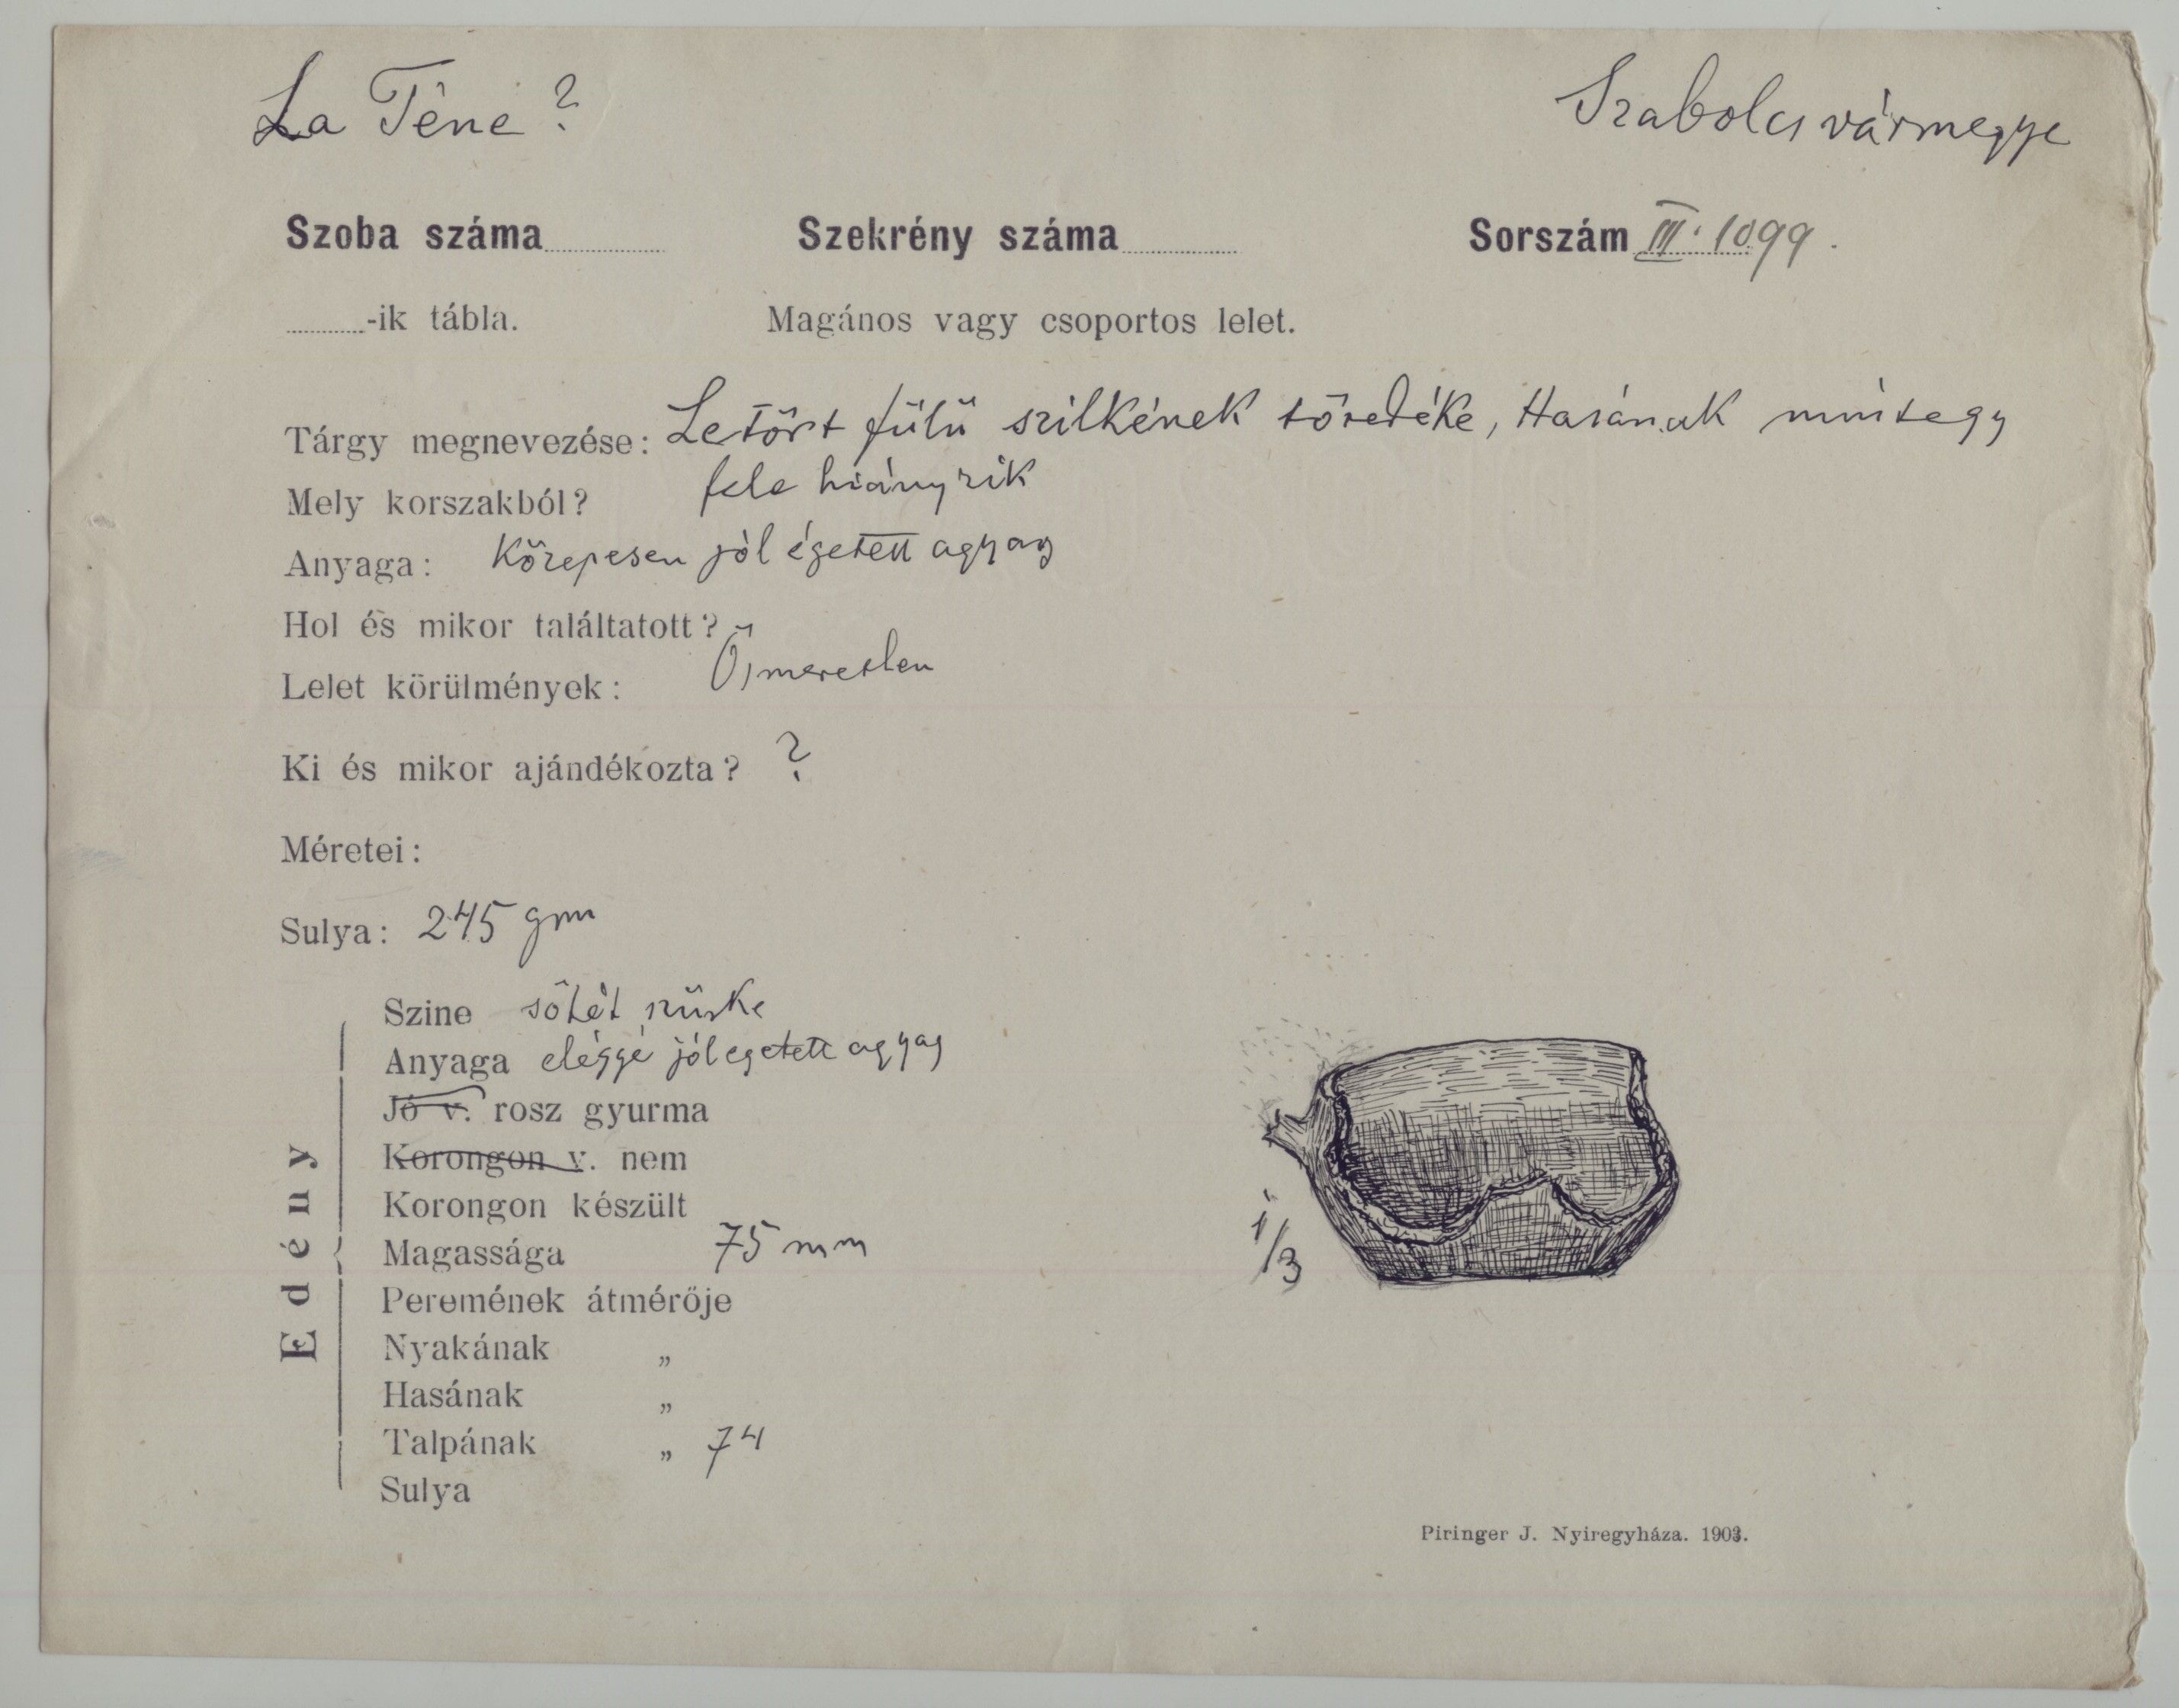 La Téne?
Szabolcsvármegye
Szoba száma Szekrény száma Sorszám III. 1099.
-ik tábla. Magános vagy csoportos lelet.
Tárgy megnevezése: Letört fülü szilkének töredéke, Hasának mintegy
fele hiányzik
Mely korszakból?
Anyaga: Közepesen jól égetett agyag
Hol és mikor találtatott?
Ösmeretlen
Lelet körülmények:
Ki és mikor ajándékozta? ?
Méretei:
Sulya: 245 gm
Edény
Szine sötét szürke
Anyaga eléggé jól egetett agyag
Jó v. rosz gyurma
Korongon v. nem
Korongon készült
Magassága 75 mm
Peremének átmérője
Nyakának „
Hasának „
Talpának „ 74
Sulya
1/3
Piringer J. Nyiregyháza. 1903.